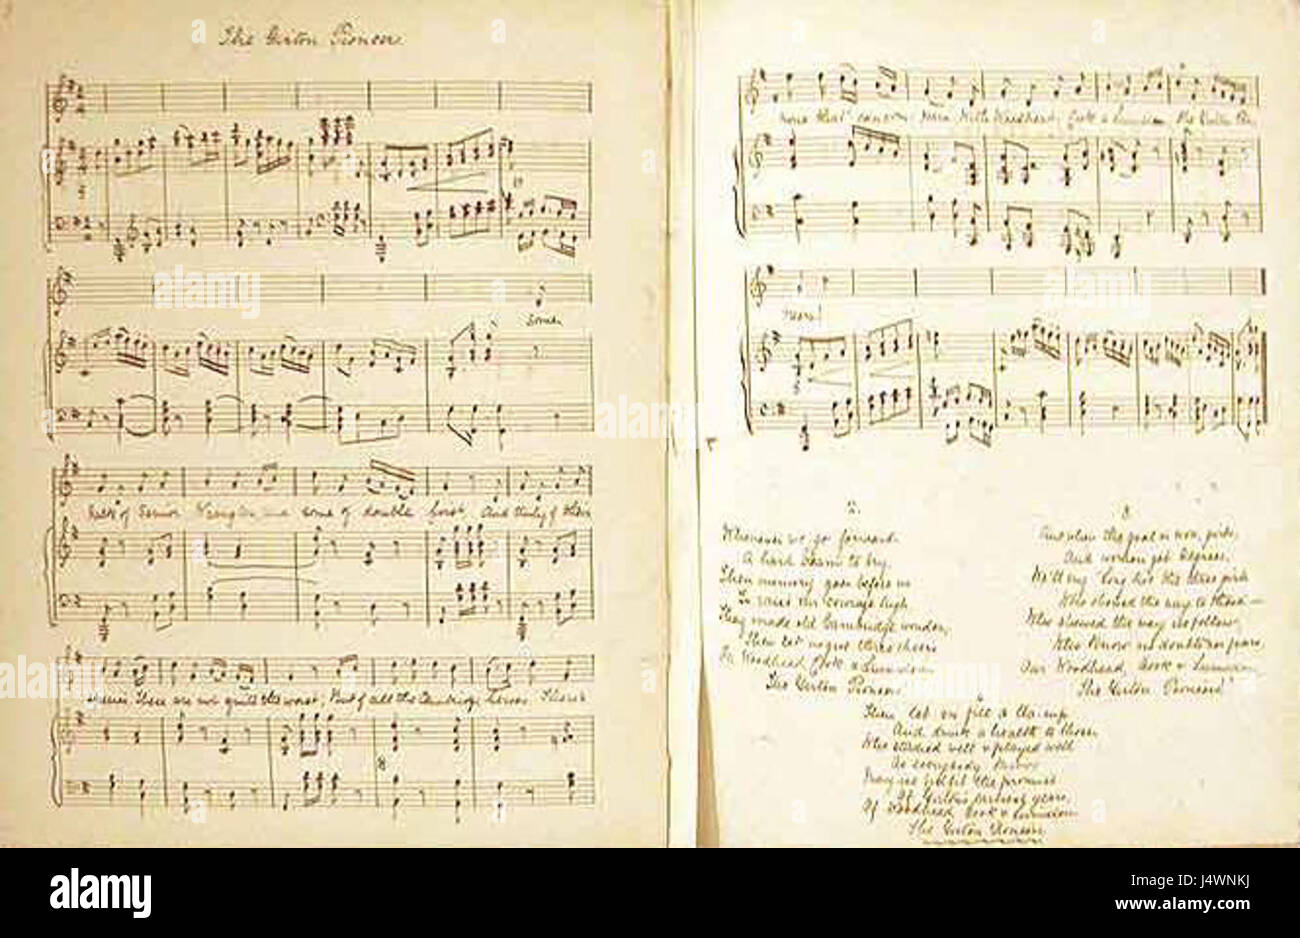 The Girton Pioneer.
Some
talk of Senior Wranglers and some of double first And truly of their
There are not quite the worst, But of all the Cambridge heroes There's
none that can Here With Woodhead, Cook & Lumsden the Girton Pio
neers!
2.
Whenever we go forward
A hard Exam to try,
Then memory goes before us
To raise our courage high
They made old Cambridge wonder,
Then let us give three cheers
For Woodhead, Cook & Lumsden
The Girton Pioneers!
3
And when the goal is won, girls,
And women get Degrees,
We'll cry 'Long live the three girls
Who showed the way to these' —
Who showed the way we follow,
Who knew no doubts or fears,
Our Woodhead, Cook & Lumsden
The Girton Pioneers!
4
Then let us fill a tea-cup
And drink a health to those
Who studied well & played well
As everybody knows
May we fulfil the promise
Of Girton's earliest years,
Of Woodhead, Cook & Lumsden
The Girton Pioneers
alamy
alamy
Image ID: J4WNKJ
www.alamy.com